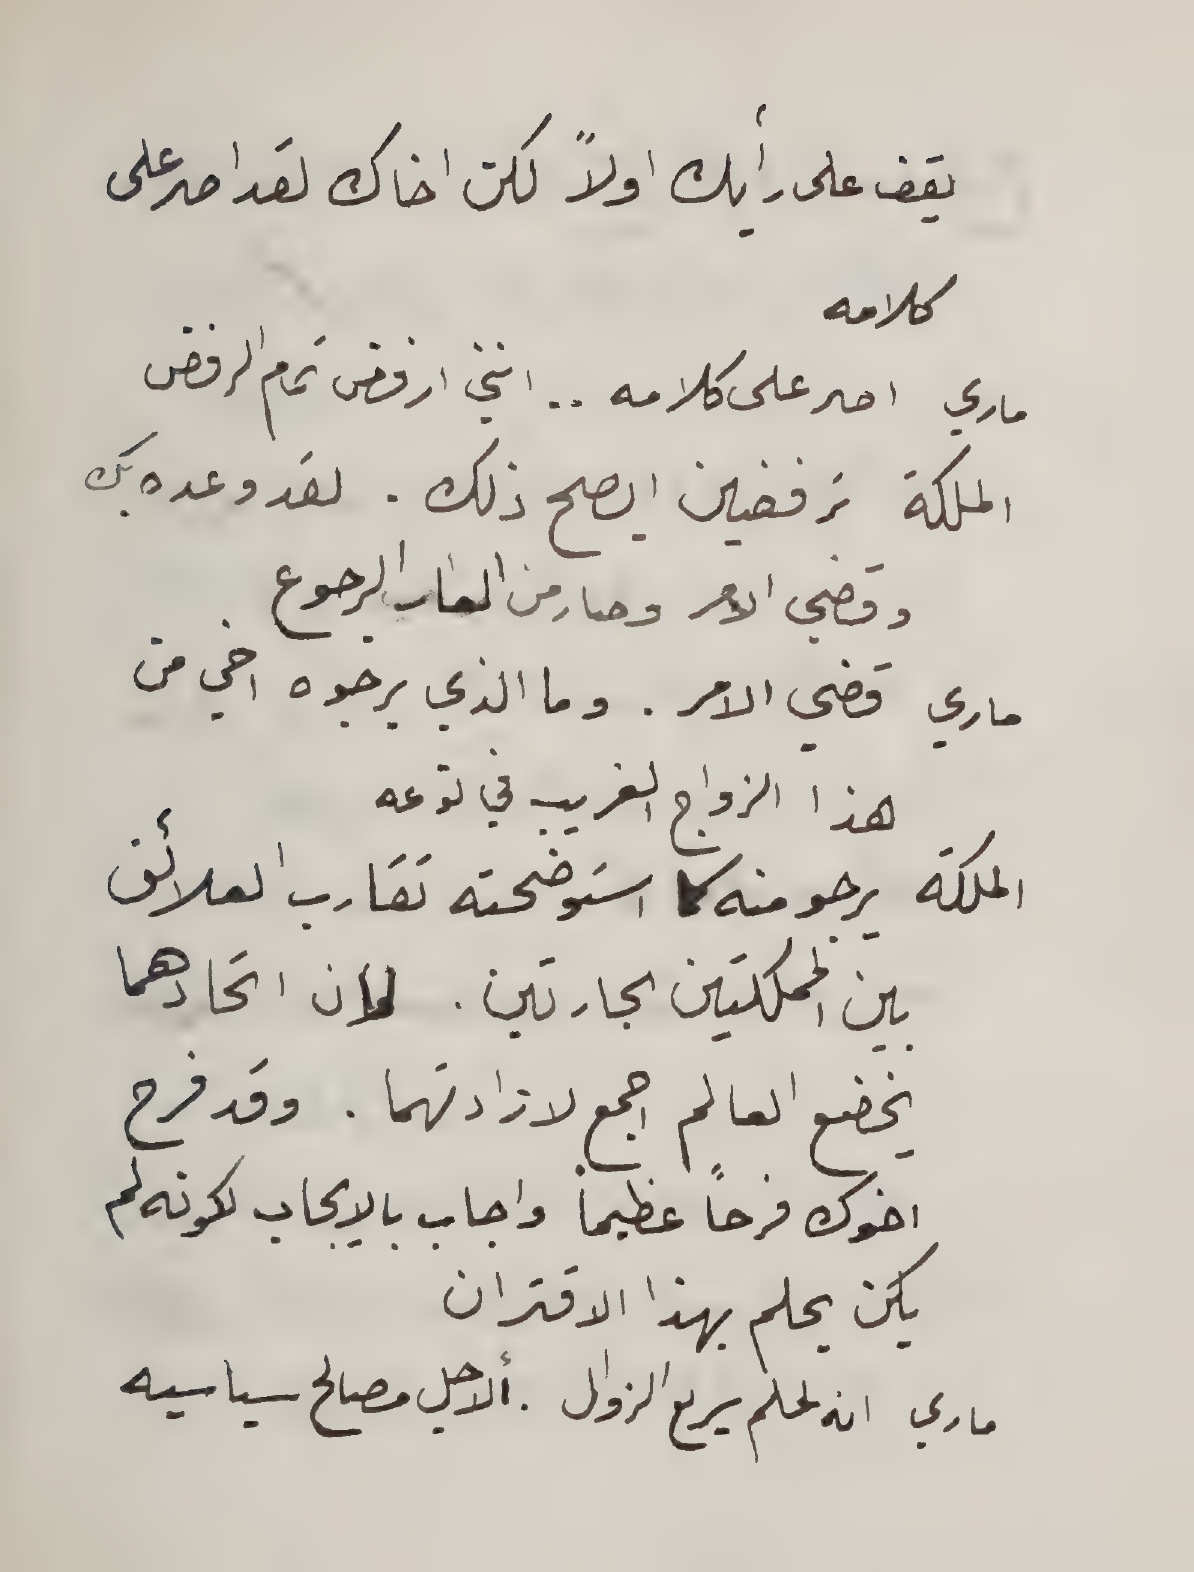 يقف على رأيك اولاً لكن اخاك لقد اصر على
كلامه
ماري اصر على كلامه .. انني ارفض تمام الرفض
الملكة ترفضين ايصح ذلك . لقد وعده بك
وقضي الامر وصار من العار الرجوع
ماري قضي الامر . وما الذي يرجوه اخي من
هذا الزواج الغريب في نوعه
الملكة يرجو منه كما استوضحته تقارب العلائق
بين المملكتين الجارتين . لان اتحادهما
يخضع العالم اجمع لارادتهما . وقد فرح
اخوك فرحاً عظيماً واجاب بالايجاب لكونه لم
يكن يحلم بهذا الاقتران
ماري انه لحلم سريع الزوال . ألاجل مصالح سياسيه